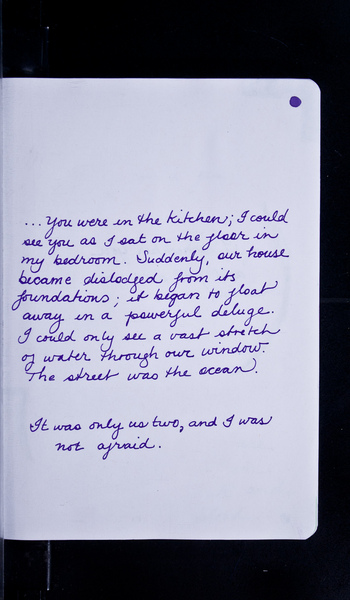 ...You were in the kitchen; I could
see you as I sat on the floor in
my bedroom. Suddenly, our house
became dislodged from its
foundations; it began to float
away in a powerful deluge.
I could only see a vast stretch
of water through our window.
The street was the ocean.
It was only us two, and I was
not afraid.